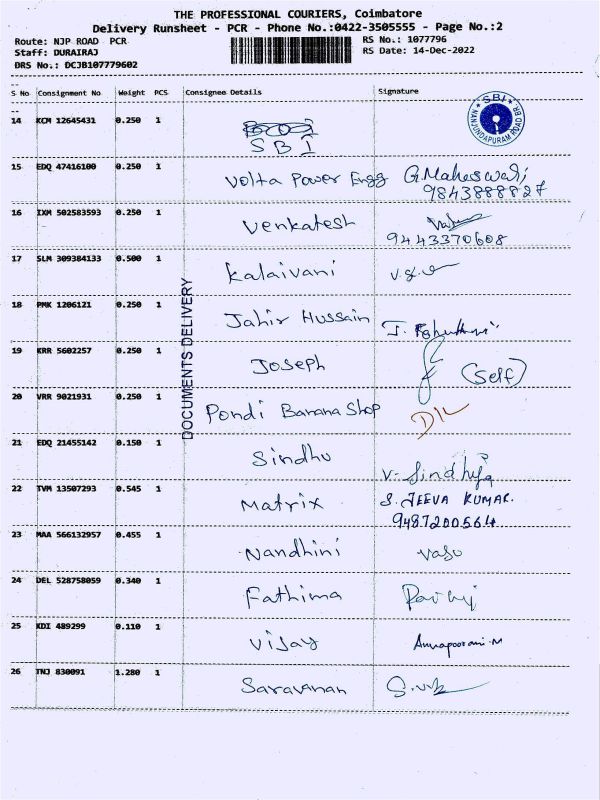 THE PROFESSIONAL COURIERS, Coimbatore
Delivery Runsheet - PCR - Phone No.:0422-3505555 - Page No.:2
Route: NJP ROAD PCR
RS No.: 1077796
Staff: DURAIRAJ
RS Date: 14-Dec-2022
DRS No.: DCJB107779602
S No Consignment No Weight PCS Consignee Details Signature
14 KCM 12645431 0.250 1 SBI
SBI
NANJUNDAPURAM ROAD BR.
15 EDQ 47416100 0.250 1 Volta Power Engg G. Maheswari
9843888827
16 IXM 502583593 0.250 1 Venkatesh
9443370608
17 SLM 309384133 0.500 1 Kalaivani
18 PMK 1206121 0.250 1 Jahir Hussain
19 KRR 5602257 0.250 1 Joseph (Self)
20 VRR 9021931 0.250 1 Pondi Banana Shop D/L
DOCUMENTS DELIVERY
21 EDQ 21455142 0.150 1 Sindhu V- Sindhuja
22 TVM 13507293 0.545 1 Matrix S. JEEVA KUMAR.
9487200564
23 MAA 566132957 0.455 1 Nandhini Vasu
24 DEL 528758059 0.340 1 Fathima
25 KDI 489299 0.110 1 Vijay Annapoorani-M
26 TNJ 830091 1.280 1 Saravanan